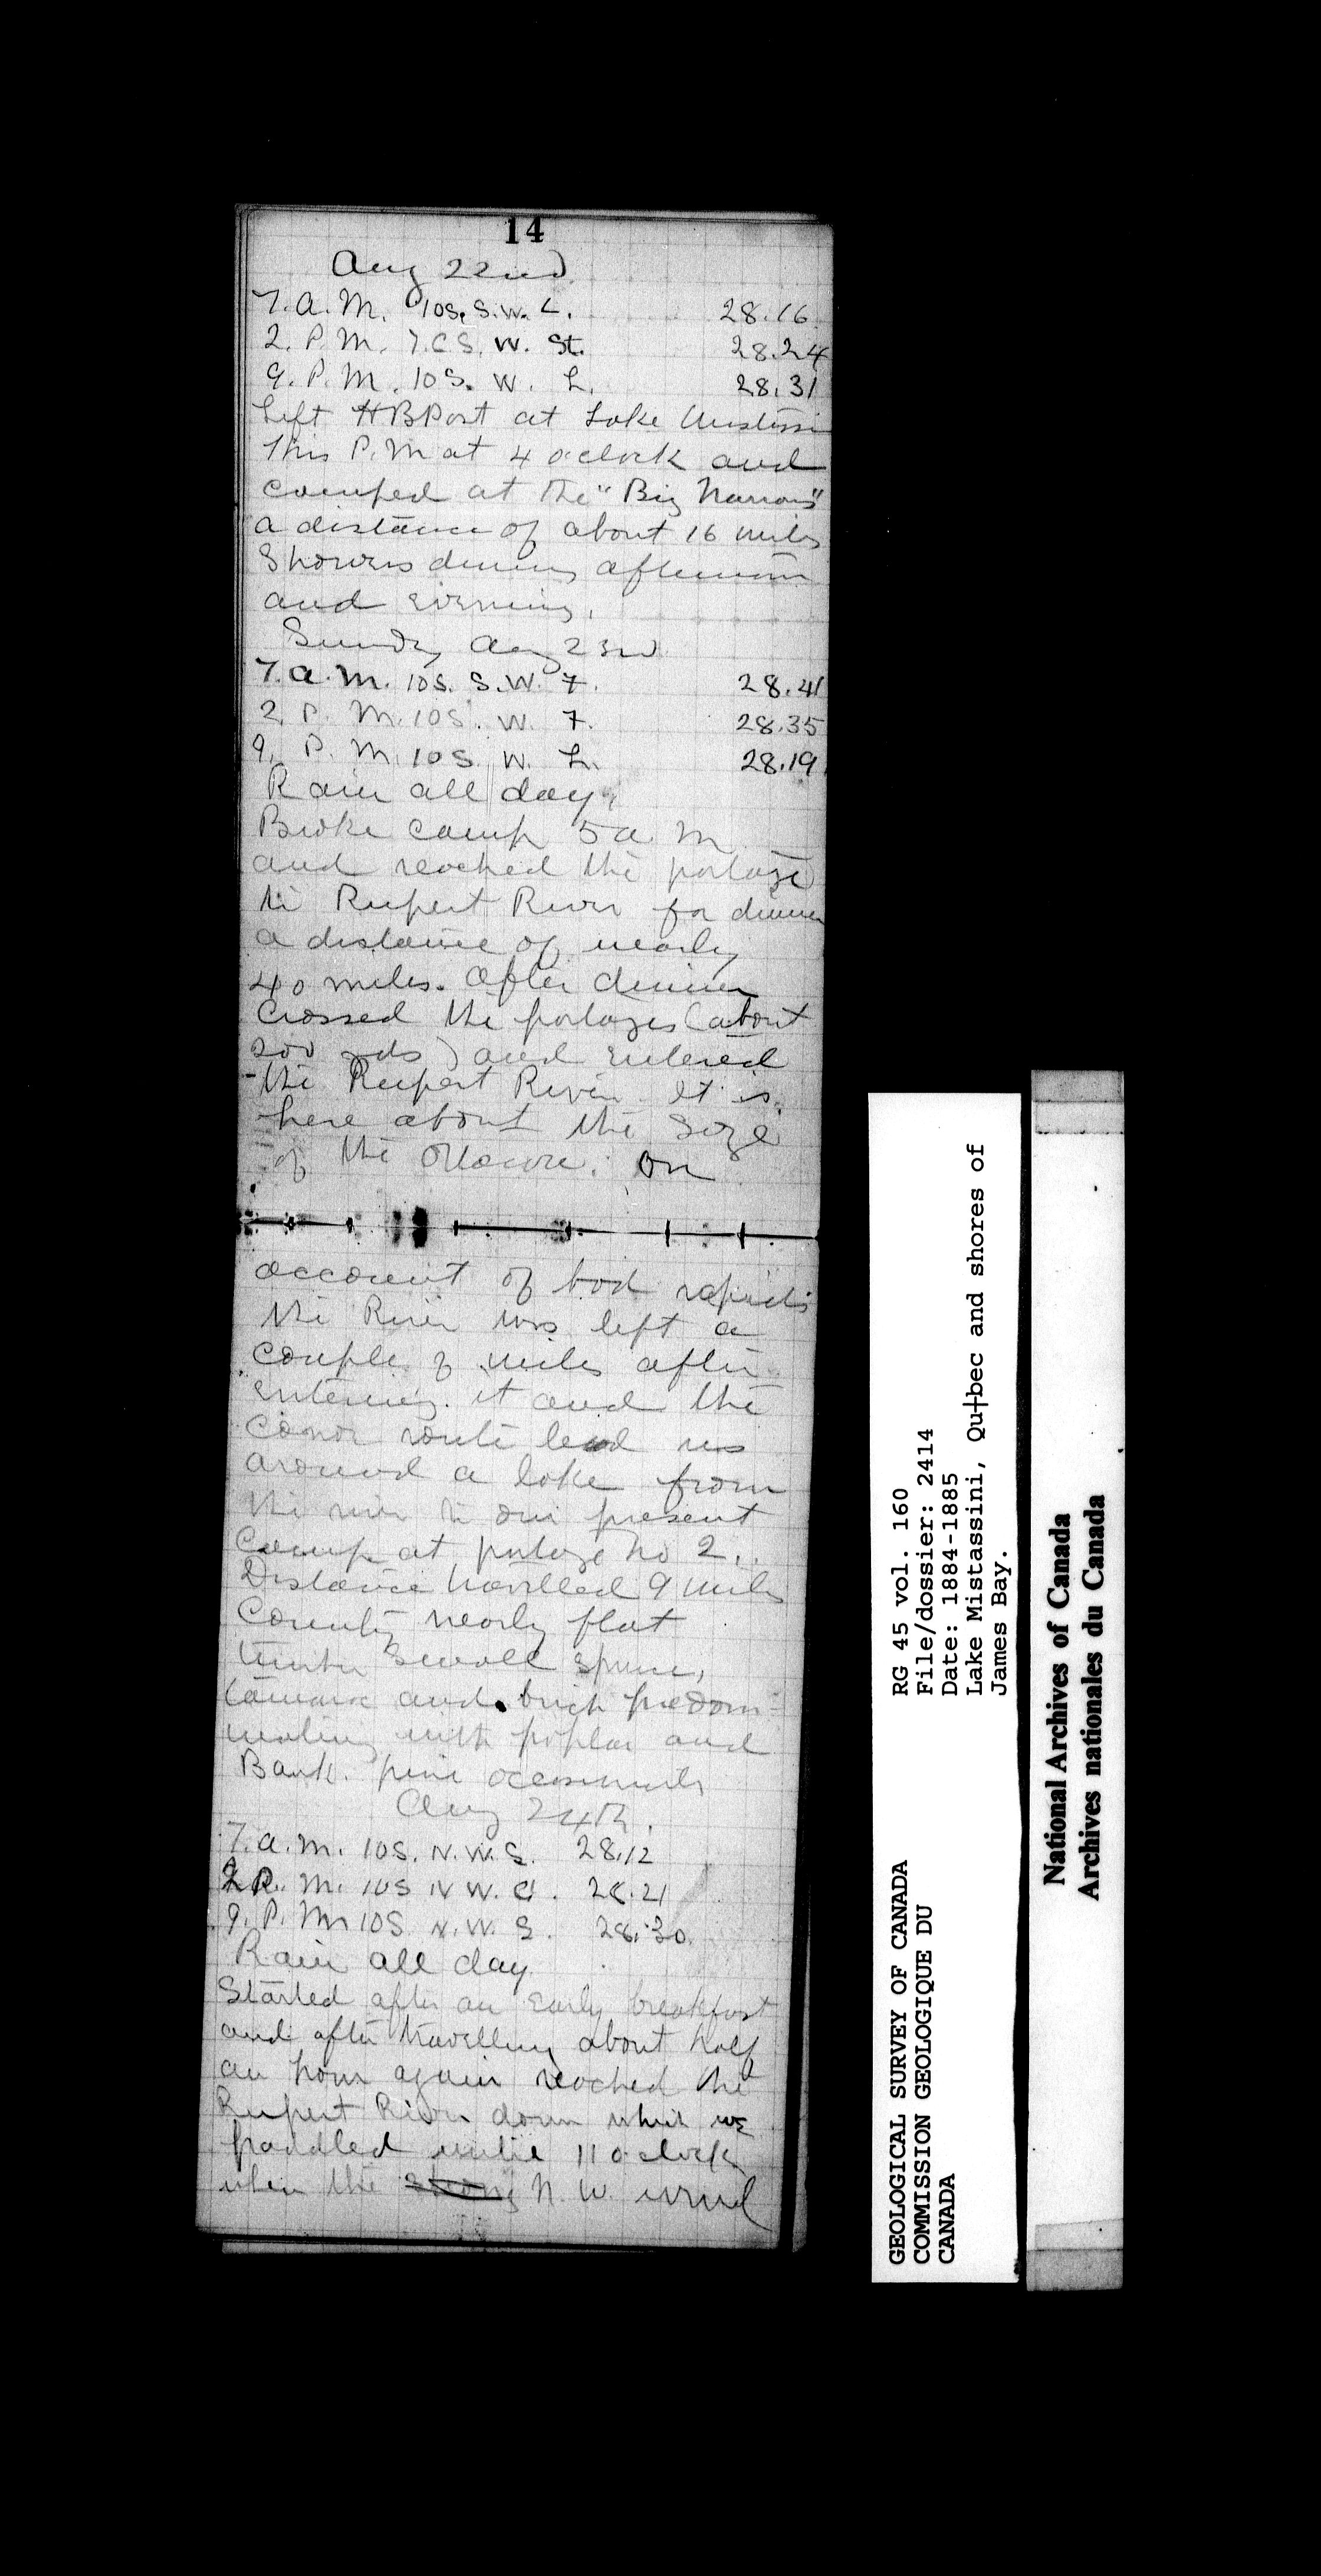 14
Aug 22nd
7. A. M. 10 S. S. W. L. 28.16
2. P. M. 7. C S. W. St. 28.24
9. P. M. 10 S. W. L. 28.31
Left H B Post at Lake Mistassini
this P. M at 4 oclock and
camped at the "Big Narrows"
a distance of about 16 miles
Showers during afternoon
and evening.
Sunday Aug 23rd
7. a. m. 10 S. S. W. F. 28.41
2. P. M. 10 S. W. F. 28.35
9. P. M. 10 S. W. L. 28.19
Rain all day.
Broke camp 5 a m
and reached the portage
to Rupert River for dinner
a distance of nearly
40 miles. After dinner
crossed the portages (about
200 yds) and entered
the Rupert River. It is
here about the size
of the Ottawa. On
account of bad rapids
the River was left a
couple of miles after
entering it and the
canoe route lead us
around a lake from
the river to our present
camp at portage No 2.
Distance travelled 9 miles
Country nearly flat
timber small spruce,
tamarac and birch predom-
inating with poplar and
Bank. pine occasionally
Aug 24th.
7. a. m. 10 S. N. W. S. 28.12
2 P. M. 10 S N W. 28.21
9. P. M 10 S N. W. S. 28.30
Rain all day
Started after an early breakfast
and after travelling about half
an hour again reached the
Rupert River down which we
paddled until 11 oclock
when the strong N. W. wind
GEOLOGICAL SURVEY OF CANADA
COMMISSION GEOLOGIQUE DU
CANADA
RG 45 vol. 160
File/dossier: 2414
Date: 1884-1885
Lake Mistassini, Qu†bec and shores of
James Bay.
National Archives of Canada
Archives nationales du Canada